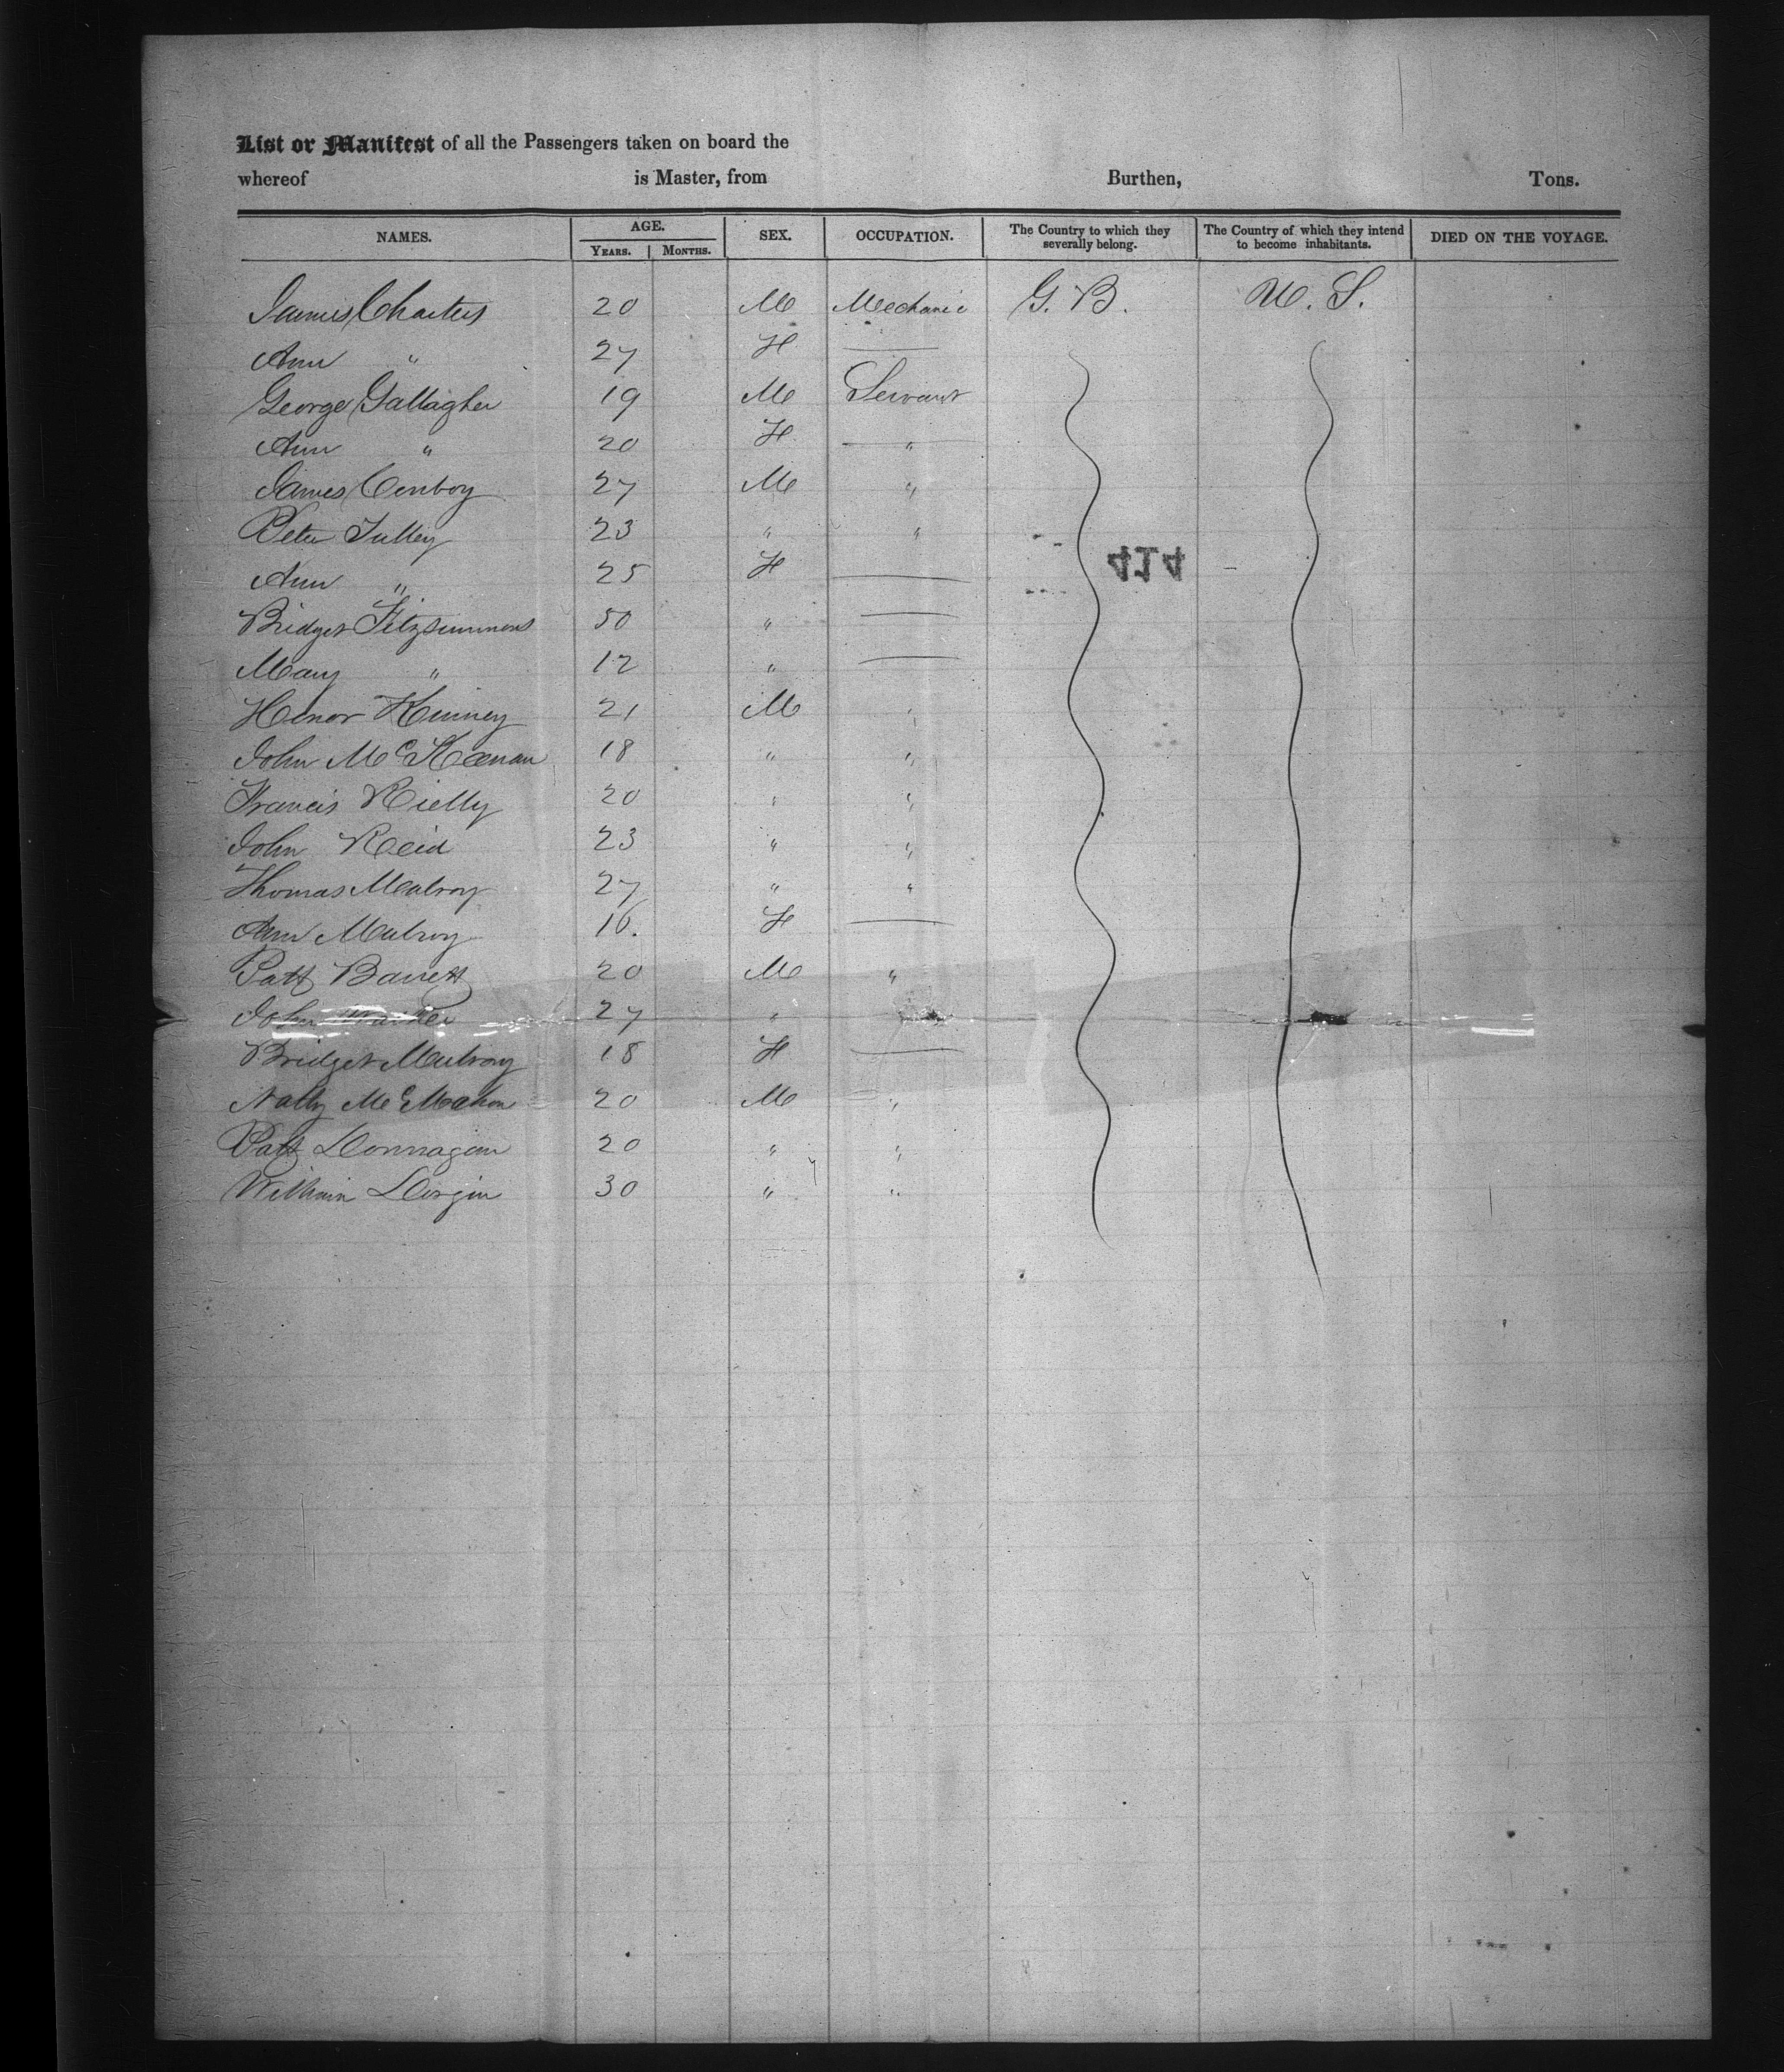 List or Manifest of all the Passengers taken on board the
whereof is Master, from Burthen, Tons.
NAMES. AGE. SEX. OCCUPATION. The Country to which they severally belong. The Country of which they intend to become inhabitants. DIED ON THE VOYAGE.
YEARS. MONTHS.
James Charters 20 M Mechanic G. B. U. S.
Ann " 27 F
George Gallagher 19 M Servant
Ann " 20 F "
James Conboy 27 M "
Peter Tulley 23 " "
Ann " 25 F
Bridget Fitzsimmons 50 "
Mary " 12 "
Henor Kinney 21 M "
John McKeenan 18 " "
Francis Rielly 20 " "
John Reid 23 " "
Thomas Mulroy 27 " "
Ann Mulroy 16. F
Patt Barrett 20 M "
John 27 "
Bridget Mulroy 18 F
Natty McMahon 20 M "
Patt Donnagan 20 " "
William Dorgin 30 " "
414